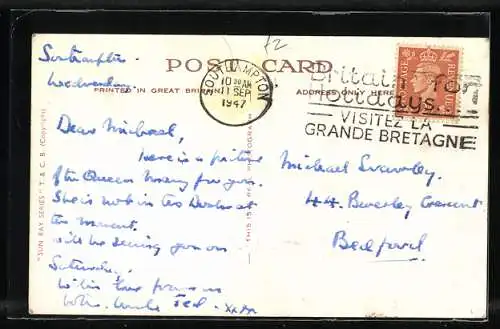 £2
Southampton
Wednesday
POST CARD
PRINTED IN GREAT BRITAIN
ADDRESS ONLY HERE
SOUTHAMPTON
10 30 AM
1 SEP
1947
Britain for
Holidays
VISITEZ LA
GRANDE BRETAGNE
POSTAGE REVENUE
"SUN RAY SERIES" T. & C. B (Copyright)
THIS IS A PHOTOGRAPH
Dear Michael,
Here is a picture
of the Queen Mary for you.
She is not in the Docks at
the moment.
will be seeing you on
Saturday.
With love from
Uncle Ted - xxxx
Michael
44 Beverley Crescent
Bedford